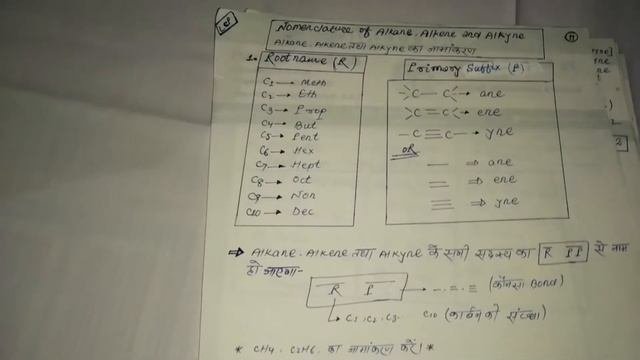 Nomenclature of Alkane, Alkene and Alkyne
Alkane, Alkene तथा Alkyne का नामांकरण
11
1. Root name (R)
C1 → Meth
C2 → Eth
C3 → Prop
C4 → But
C5 → Pent
C6 → Hex
C7 → Hept
C8 → Oct
C9 → Non
C10 → Dec
Primary Suffix (P)
>C—C< → ane
>C=C< → ene
—C≡C— → yne
OR
— ⇒ ane
= ⇒ ene
≡ ⇒ yne
⇒ Alkane, Alkene तथा Alkyne के सभी सदस्य का R P से नाम
हो जाएगा-
R P → -, =, ≡ (कौनसा Bond)
→ C1, C2, C3 C10 (कार्बन की संख्या)
* CH4, C2H6, का नामांकरण करें। *
2